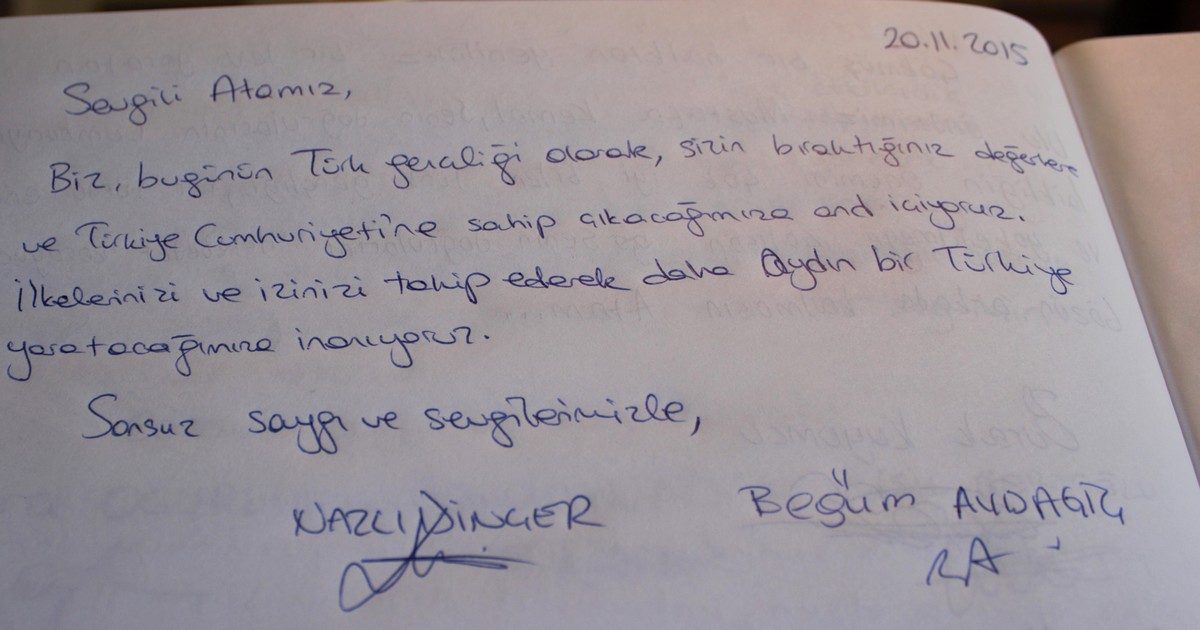 20.11.2015
Sevgili Atamız,
Biz, bugünün Türk gençliği olarak, sizin bıraktığınız değerlere
ve Türkiye Cumhuriyeti'ne sahip çıkacağımıza and içiyoruz.
İlkelerinizi ve izinizi takip ederek daha aydın bir Türkiye
yaratacağımıza inanıyoruz.
Sonsuz saygı ve sevgilerimizle,
NAZLI DİNÇER Begüm